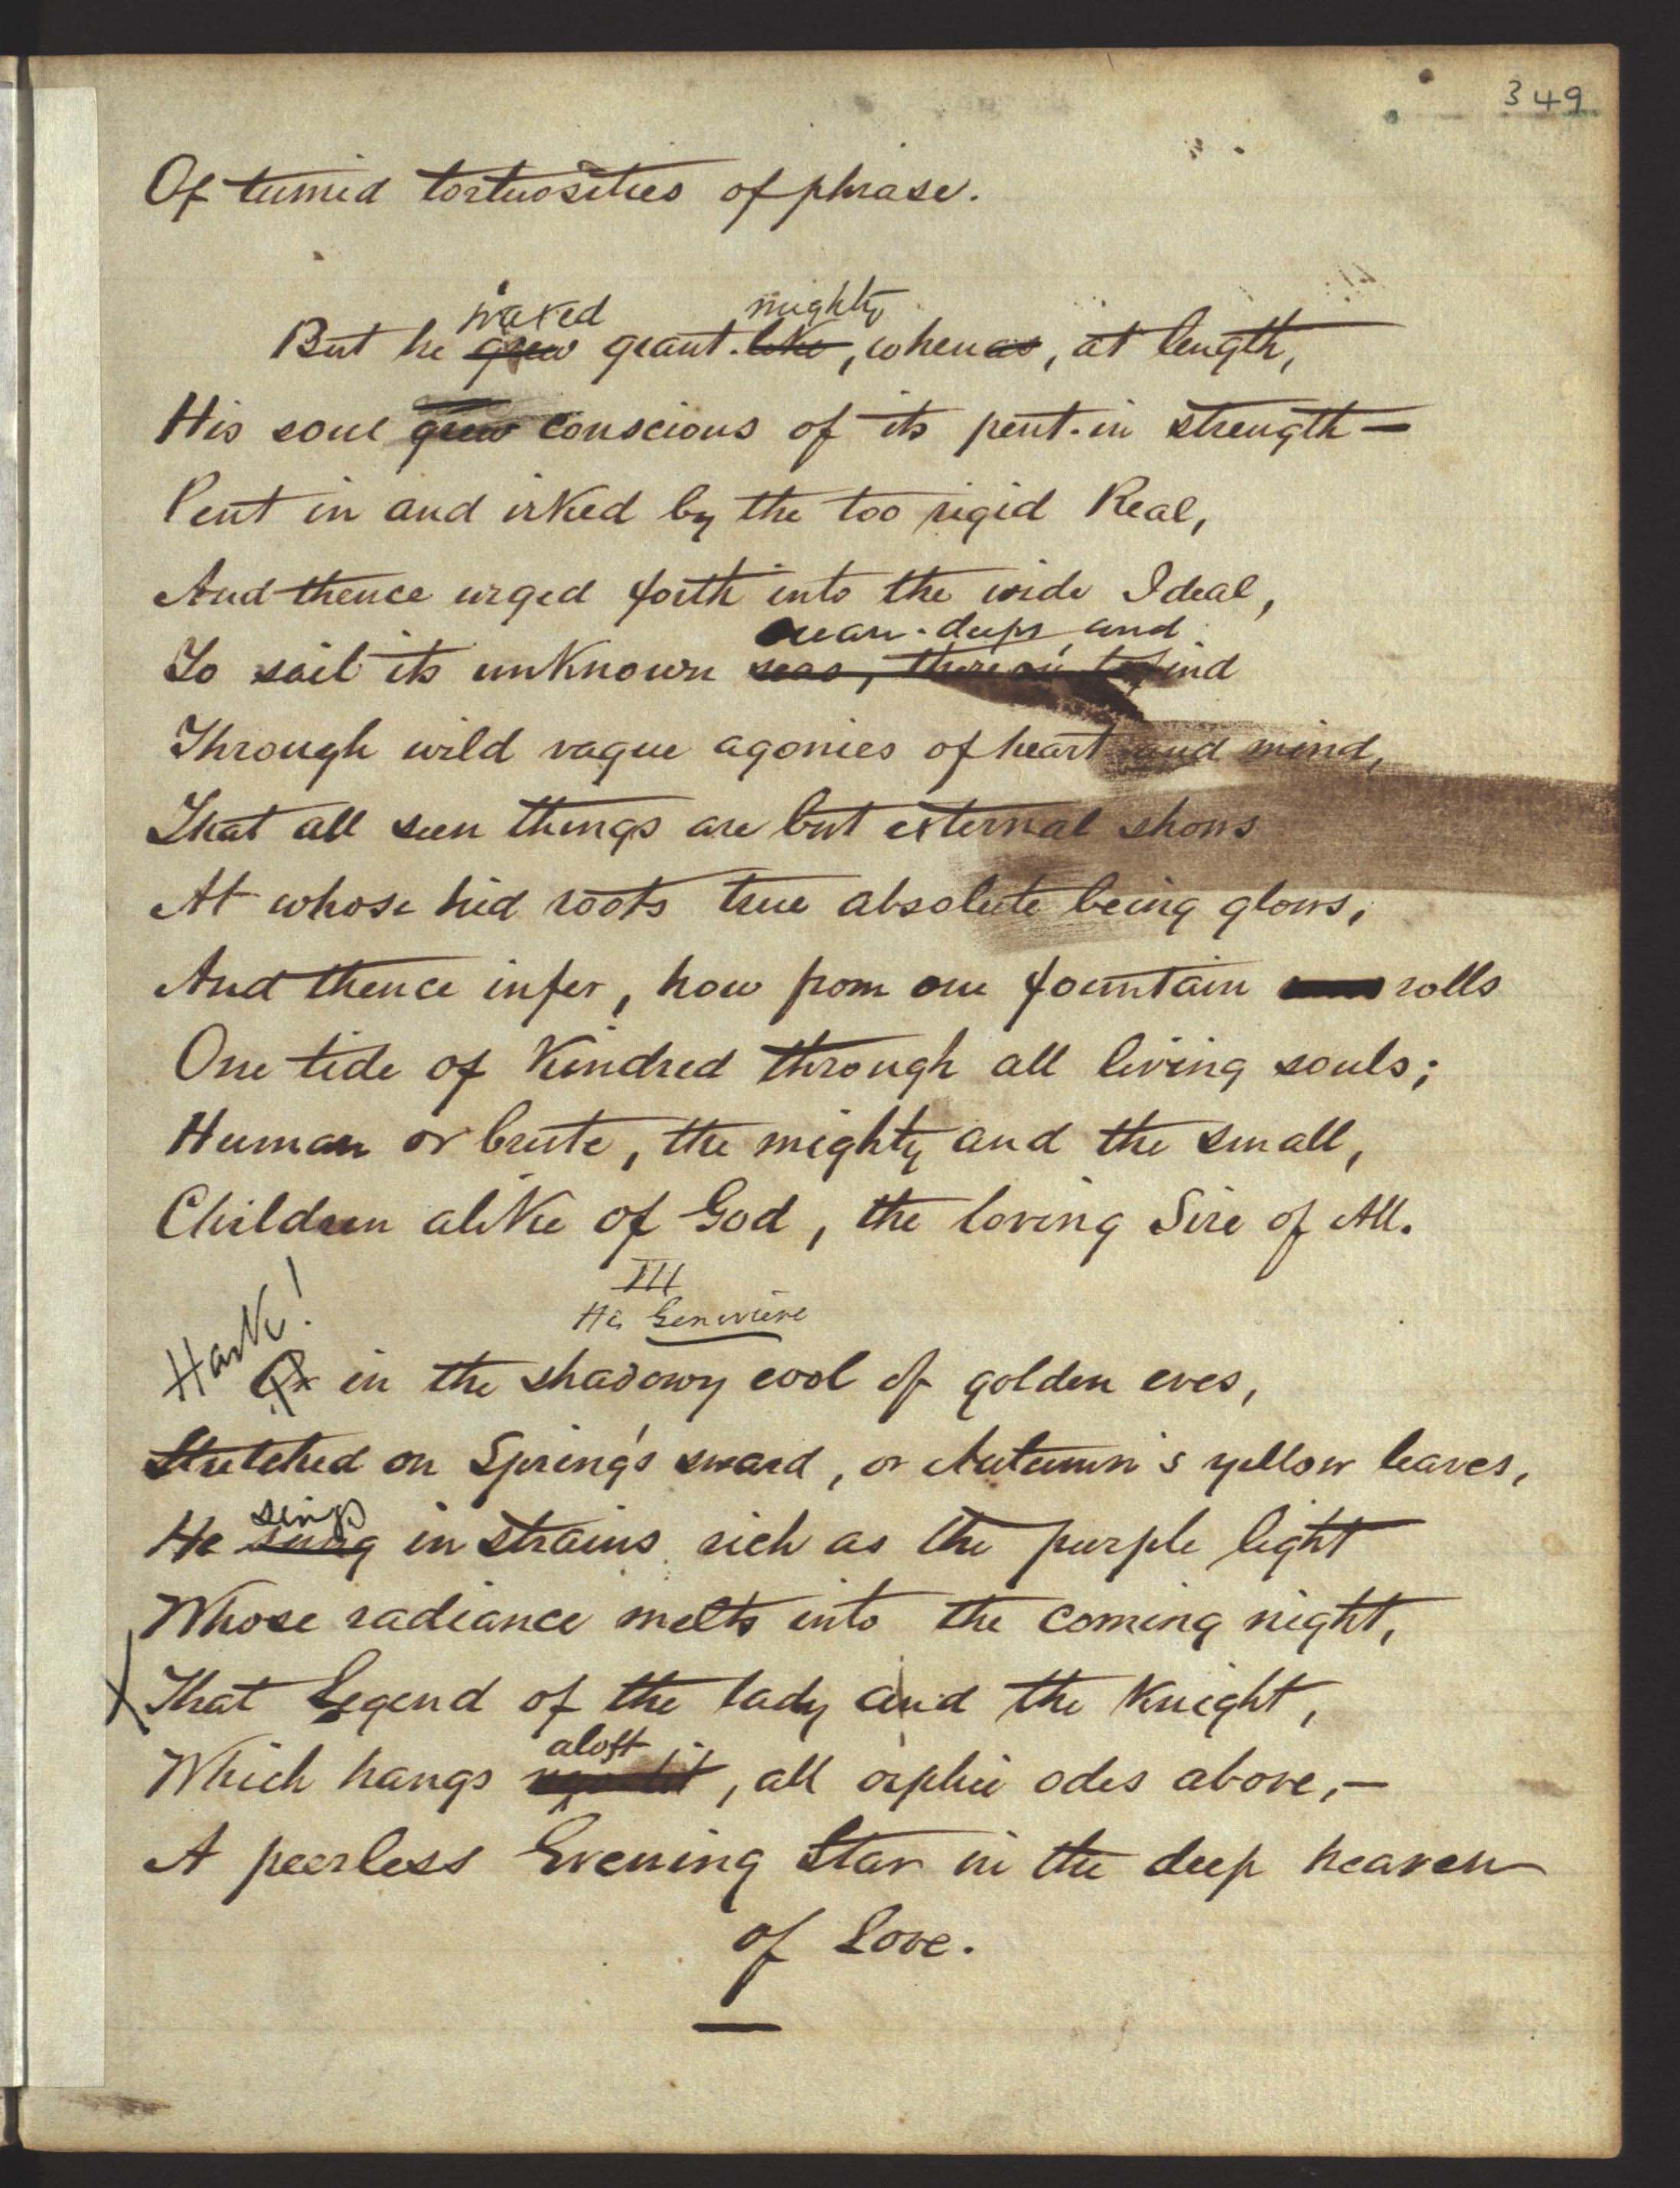 349
Of tumid tortuosities of phrase.
waxed mighty
But he grew giant-like, whenas, at length,
His soul grew conscious of its pent-in strength —
Pent in and irked by the too rigid Real,
And thence urged forth into the wide Ideal,
ocean-deeps, and
To sail its unknown seas, thereon to find
Through wild vague agonies of heart and mind,
That all seen things are but external shows
At whose hid roots true absolute being glows;
And thence infer, how from one fountain rolls
One tide of Kindred through all living souls;
Human or brute, the mighty and the small,
Children alike of God, the loving Sire of All.
III
His Genevieve
Hark!
Or in the shadowy cool of golden eves,
Stretched on Spring's sward, or Autumn's yellow leaves,
sings
He sung in strains rich as the purple light
Whose radiance melts into the coming night,
That Legend of the lady and the Knight,
aloft
Which hangs, all orphic odes above, —
A peerless Evening Star in the deep heaven
of Love.